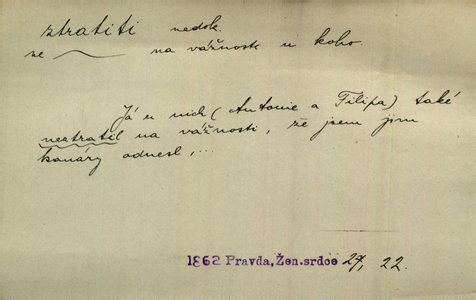 ztratiti nedok.
ne ~ na vážnosti u koho.
Já u nich (Antonie a Filipa) také
neztratil na vážnosti, že jsem jim
kanáry odnesl,...
1862 Pravda, Žen. srdce 27, 22.